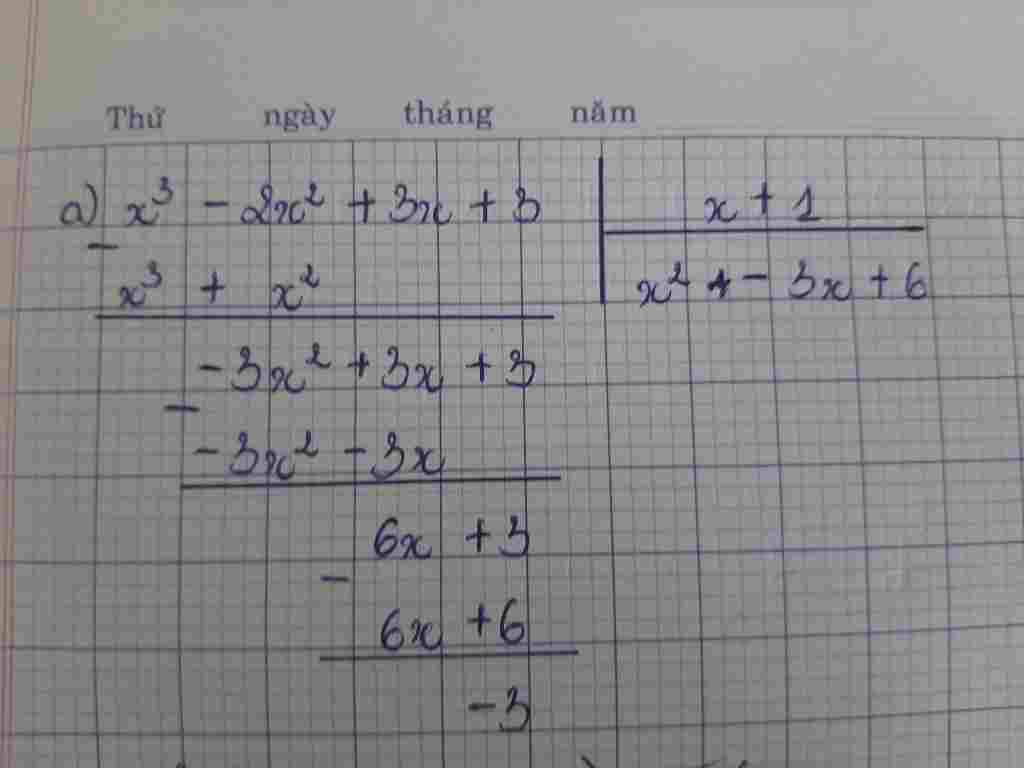 Thứ ngày tháng năm
a) x³ - 2x² + 3x + 3 | x + 1
- x³ + x² | x² - 3x + 6
-3x² + 3x + 3
- -3x² - 3x
6x + 3
- 6x + 6
-3